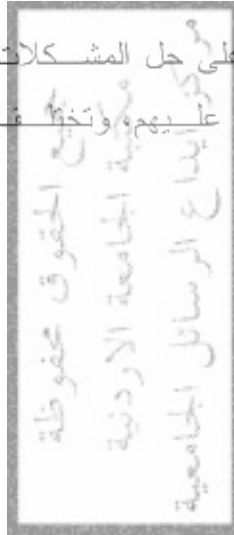 على حل المشكلات
عليهم، وتخ
جميع الحقوق محفوظة
مكتبة الجامعة الاردنية
مركز ايداع الرسائل الجامعية